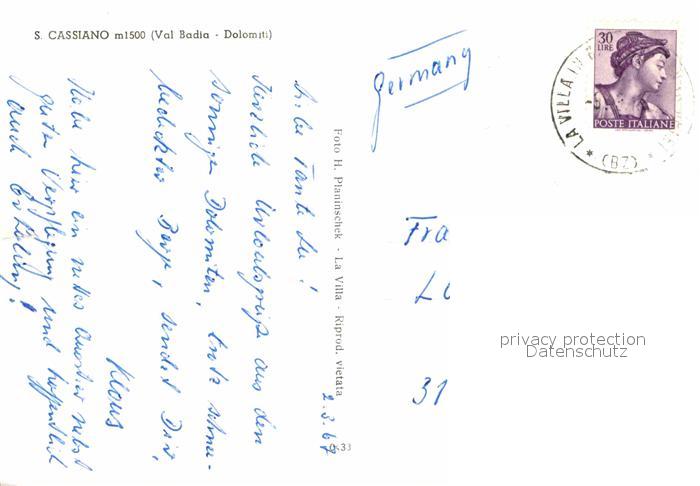 S. CASSIANO m1500 (Val Badia - Dolomiti)
Germany
30
LIRE
POSTE ITALIANE
LA VILLA IN
(BZ)
Liebe Tante Lu!
Herzliche Urlaubsgrüße aus den
sonnigen Dolomiten, trotz schnee-
bedeckter Berge, sendet Dir,
Klaus
Habe hier ein nettes Quartier nebst
guter Verpflegung und hoffentlich
auch Erholung!
2.3.67
Foto H. Planinschek - La Villa - Riprod. vietata
33
Fra
31
privacy protection
Datenschutz